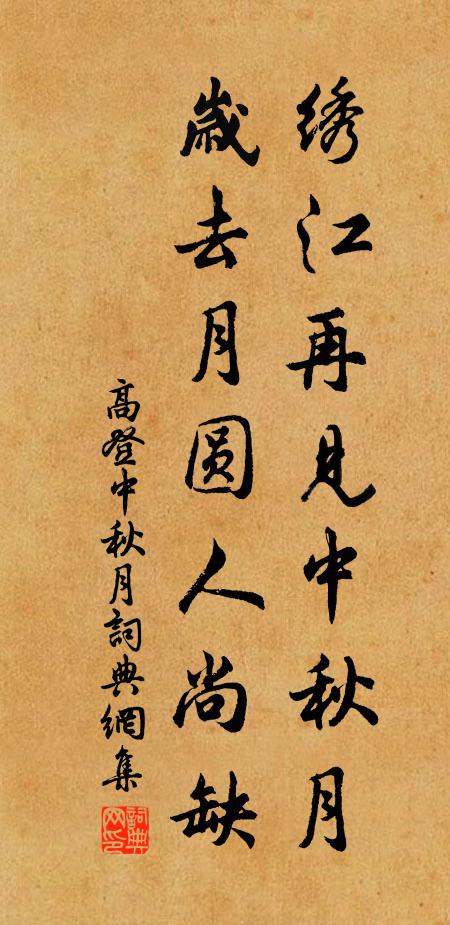 绣江再见中秋月
歲去月圆人尚缺
高登中秋月詞典網集
詞典网印